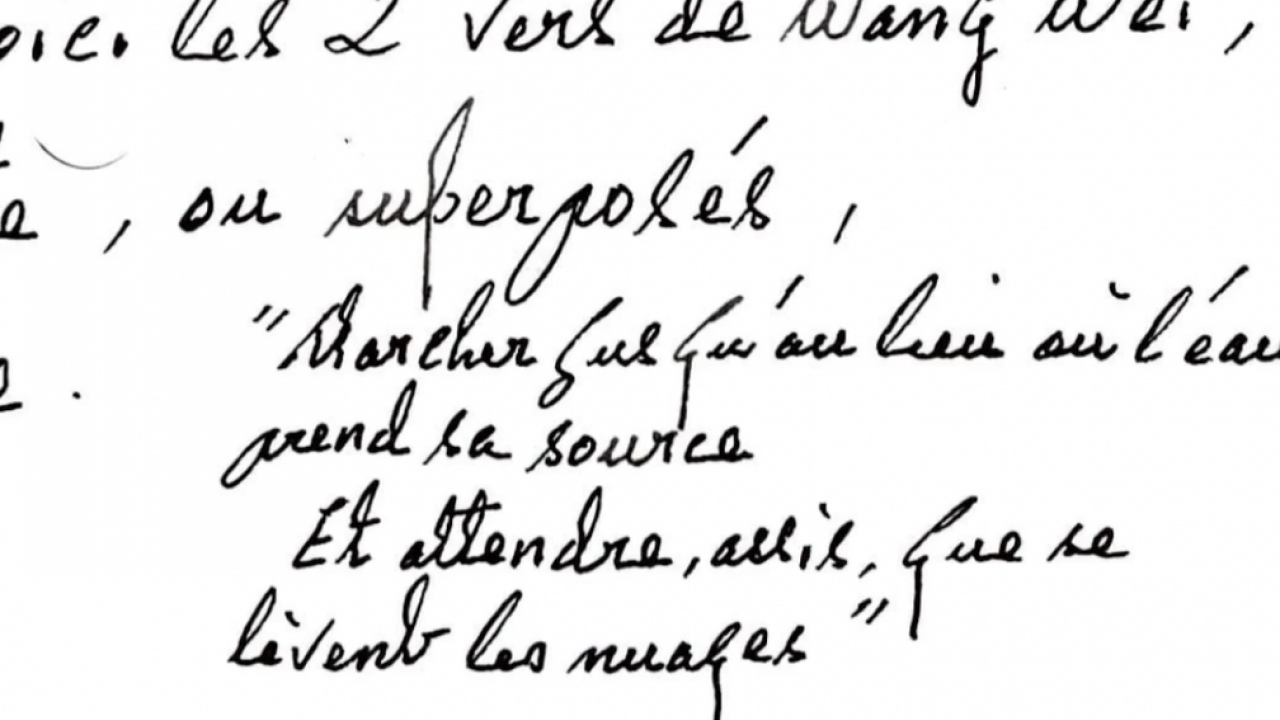 les 2 vers de Wang Wei,
, ou superposés,
"Marcher jusqu'au lieu où l'éau
prend sa source
Et attendre, assis, que se
lèvent les nuages"